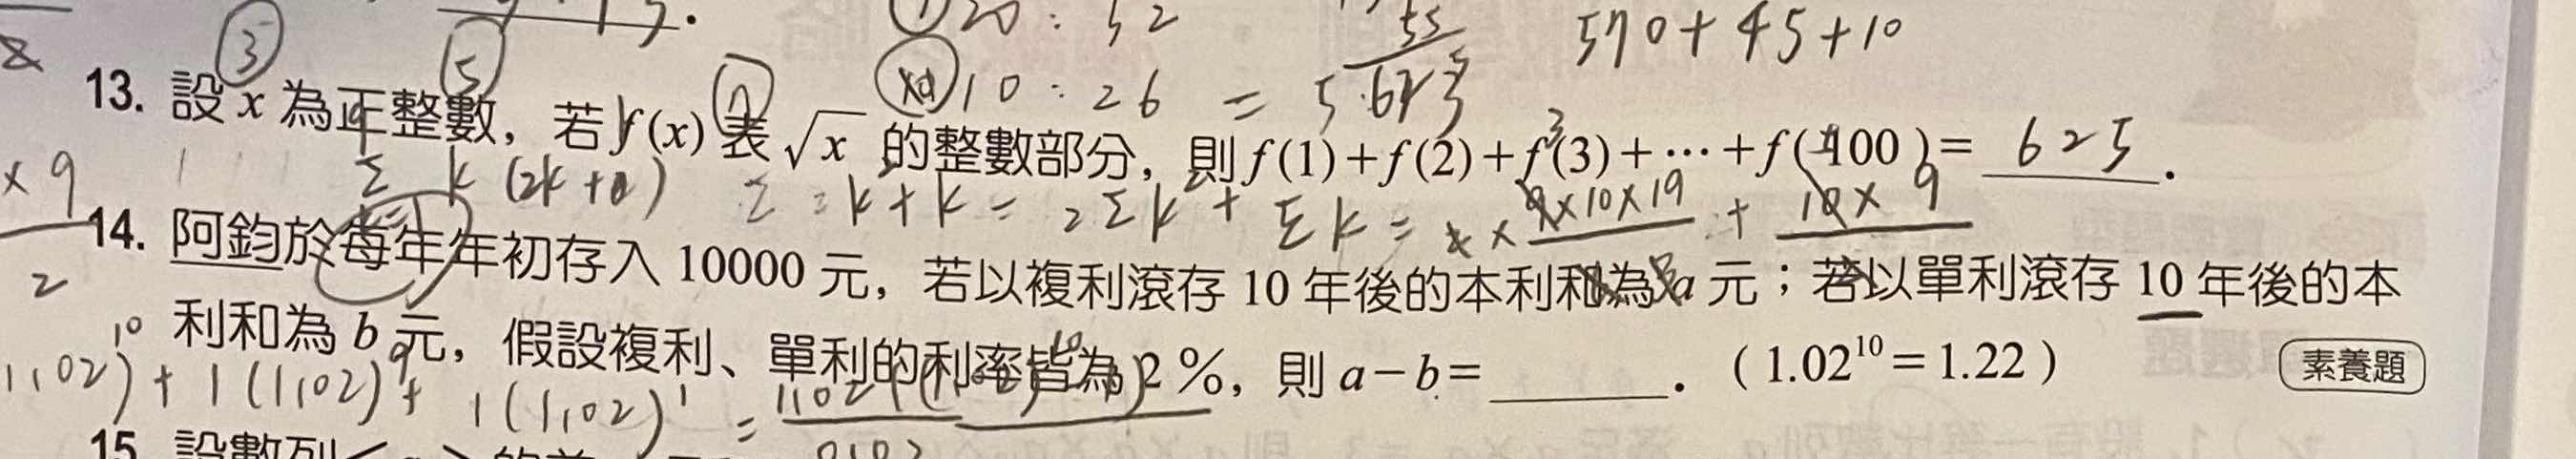 ③ ⑤ ① 20 : 52 55 570 + 45 + 10
13. 設 x 為正整數，若 f(x) 表 √x 的整數部分，則 f(1)+f(2)+f(3)+⋯+f(100)= 625 .
× 9 Σ k (2k+1) Σ k + k = 2Σk² + Σk = 9×10×19 + 10×9
14. 阿鈞於每年年初存入 10000 元，若以複利滾存 10 年後的本利和為 a 元；若以單利滾存 10 年後的本
2 利和為 b 元，假設複利、單利的利率皆為 2 %，則 a－b= ______ .（1.02¹⁰=1.22） 素養題
1.02)¹⁰ + 1(1.02)⁹ + 1(1.02)¹ =
15. 設數列